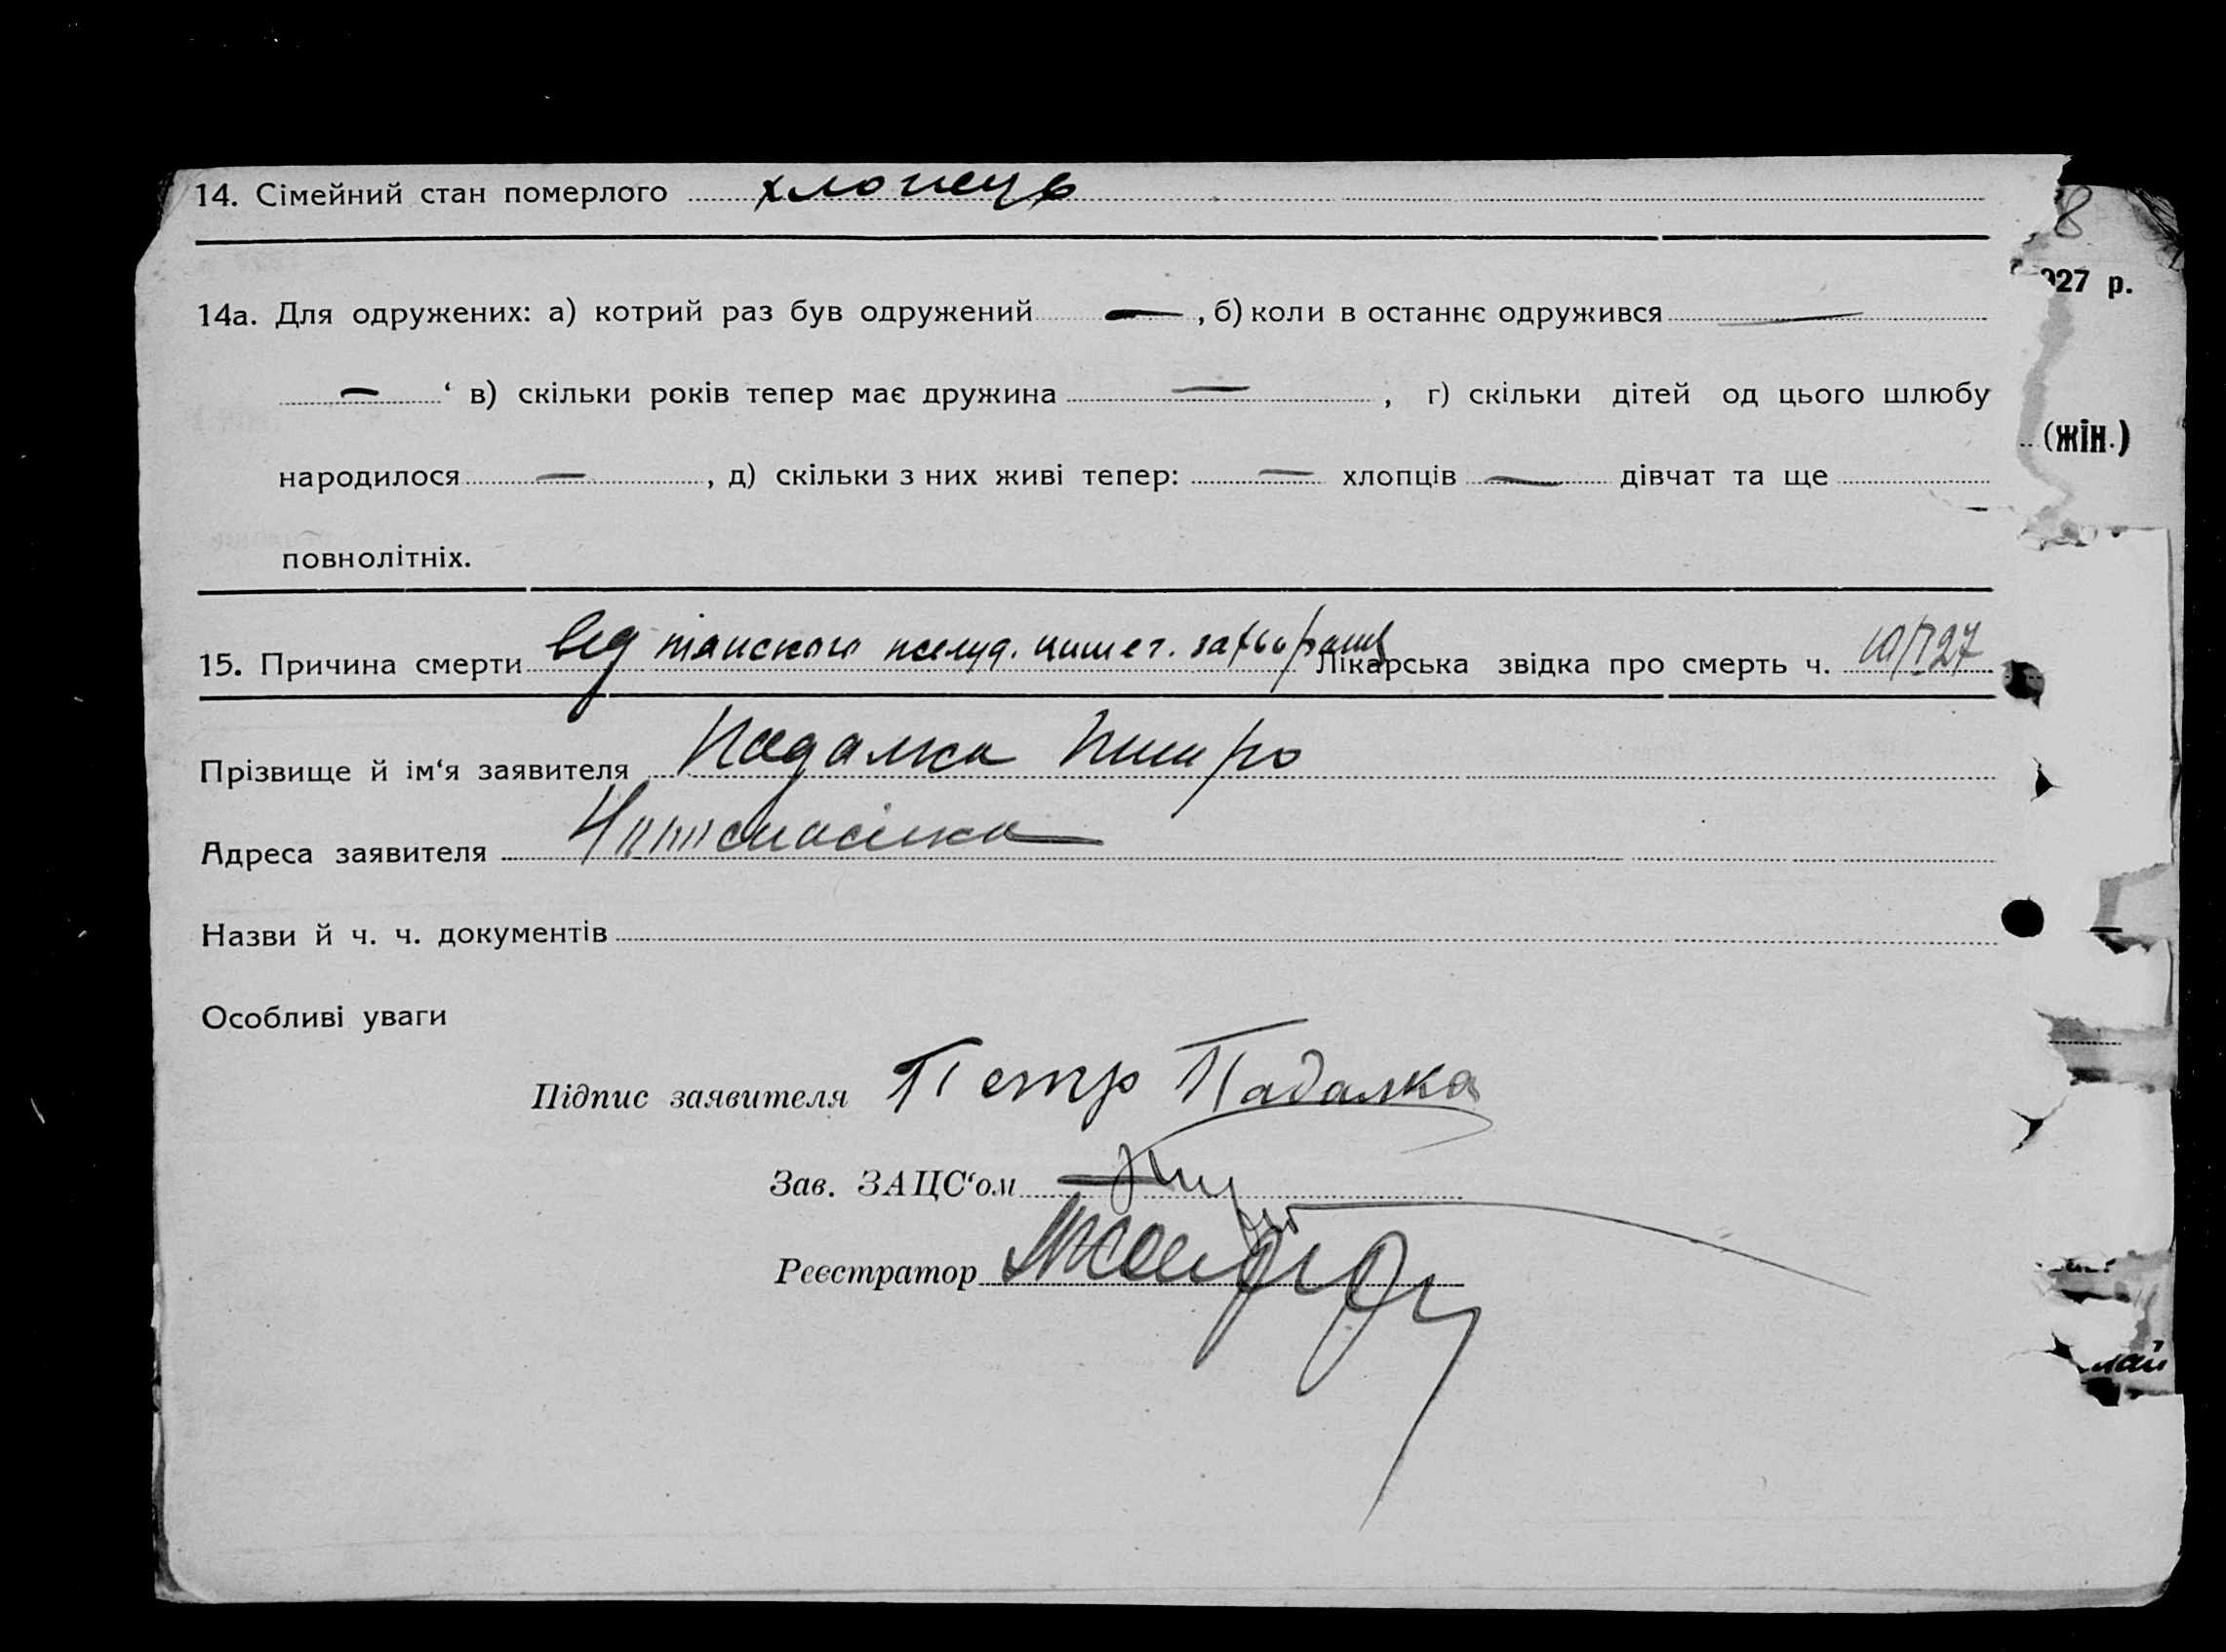 14. Сімейний стан померлого хлопець
8
927 р.
14а. Для одружених: а) котрий раз був одружений —, б) коли в останнє одружився —
— ‘ в) скільки років тепер має дружина —, г) скільки дітей од цього шлюбу
(жін.)
народилося —, д) скільки з них живі тепер: — хлопців — дівчат та ще —
повнолітніх.
15. Причина смерти від шлунк. Лікарська звідка про смерть ч.
Прізвище й ім‘я заявителя Падалка Петро
Адреса заявителя
Назви й ч. ч. документів
Особливі уваги
Підпис заявителя Петр Падалка
Зав. ЗАЦС‘ом
Реєстратор